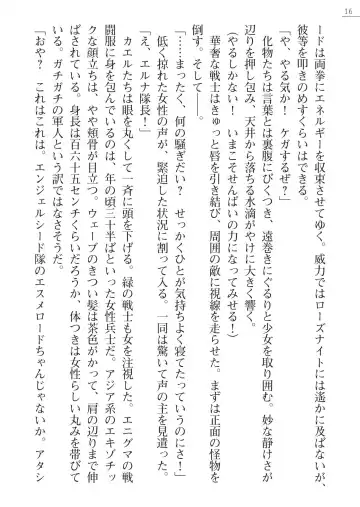 16
ードは両拳にエネルギーを収束させてゆく。威力ではローズナイトには遥かに及ばないが、
彼等を叩きのめすくらいはできる。
「や、やる気か！　ケガするぜ？」
化物たちは言葉とは裏腹にびくつき、遠巻きにぐるりと少女を取り囲む。妙な静けさが
辺りを押し包み、天井から落ちる水滴がやけに大きく響く。
(やるしかない！　いまこそせんぱいの力になってみせる！)
華奢な戦士はきゅっと唇を引き結び、周囲の敵に視線を走らせた。まずは正面の怪物を
倒す。そして――。
「……まったく、何の騒ぎだい？　せっかくひとが気持ちよく寝てたっていうのにさ！」
低く掠れた女性の声が、緊迫した状況に割って入る。一同は驚いて声の主を見遣った。
「え、エルナ隊長！」
カエルたちは眼を丸くして一斉に頭を下げる。緑の戦士も女を注視した。エニグマの戦
闘服に身を包んでいるのは、年の頃三十半ばといった女性兵士だ。アジア系のエキゾチッ
クな顔立ちは、やや頬骨が目立つ。ウェーブのきつい髪は茶色がかって、肩の辺りまで伸
ばされている。身長は百六十五センチくらいだろうか、体つきは女性らしい丸みを帯びて
いる。ガチガチの軍人という訳ではなさそうだ。
「おや？　これはこれは。エンジェルシード隊のエスメロードちゃんじゃないか。アタシ